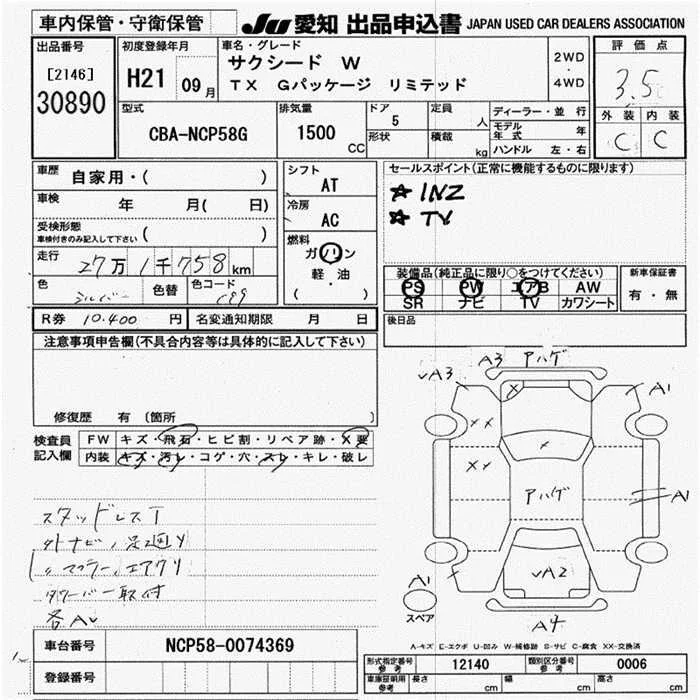 車内保管・守衛保管
JU 愛知 出品申込書 JAPAN USED CAR DEALERS ASSOCIATION
出品番号
[2146]
30890
初度登録年月
H21 09月
車名・グレード
サクシード W
TX Gパッケージ リミテッド
2WD
・
4WD
評価点
3.5
外装 内装
C C
型式
CBA-NCP58G
排気量
1500
CC
ドア
5
形状
定員
人
積載
kg
ディーラー・並行
モデル年式 年
ハンドル 左・右
車歴
自家用・( )
車検
年 月( 日)
受検形態
車検付きのみ記入して下さい ( )
走行
27万1千758km
色 シルバー 色替 色コード 1F9
R券 10.400 円
名変通知期限 月 日
シフト
AT
冷房
AC
燃料
ガソリン
軽・油
( ・ )
セールスポイント(正常に機能するものに限ります)
★ 1NZ
★ TV
装備品(純正品に限り○をつけてください)
PS PW エアB AW
SR ナビ TV カワシート
新車保証書
有・無
後日品
注意事項申告欄(不具合内容等は具体的に記入して下さい)
修復歴 有 〔箇所 〕
検査員記入欄
FW キズ・飛石・ヒビ割・リペア跡・X要
内装 キズ・汚レ・コゲ・穴・スレ・キレ・破レ
スタッドレスT
外ナビ、足廻り
マフラー、エアクリ
タワーバー取付
各AU
A3 アハゲ
A3
A1
X
XX
XX
X
アハゲ
A1
A2
A1
スペア
A4
A-キズ E-エクボ U-凹み W-補修跡 S-サビ C-腐食 XX-交換済
車台番号 NCP58-0074369
登録番号
形式指定番号参考 12140 類別区分番号参考 0006
車庫証明用参考 長さ cm 幅 cm 高さ cm